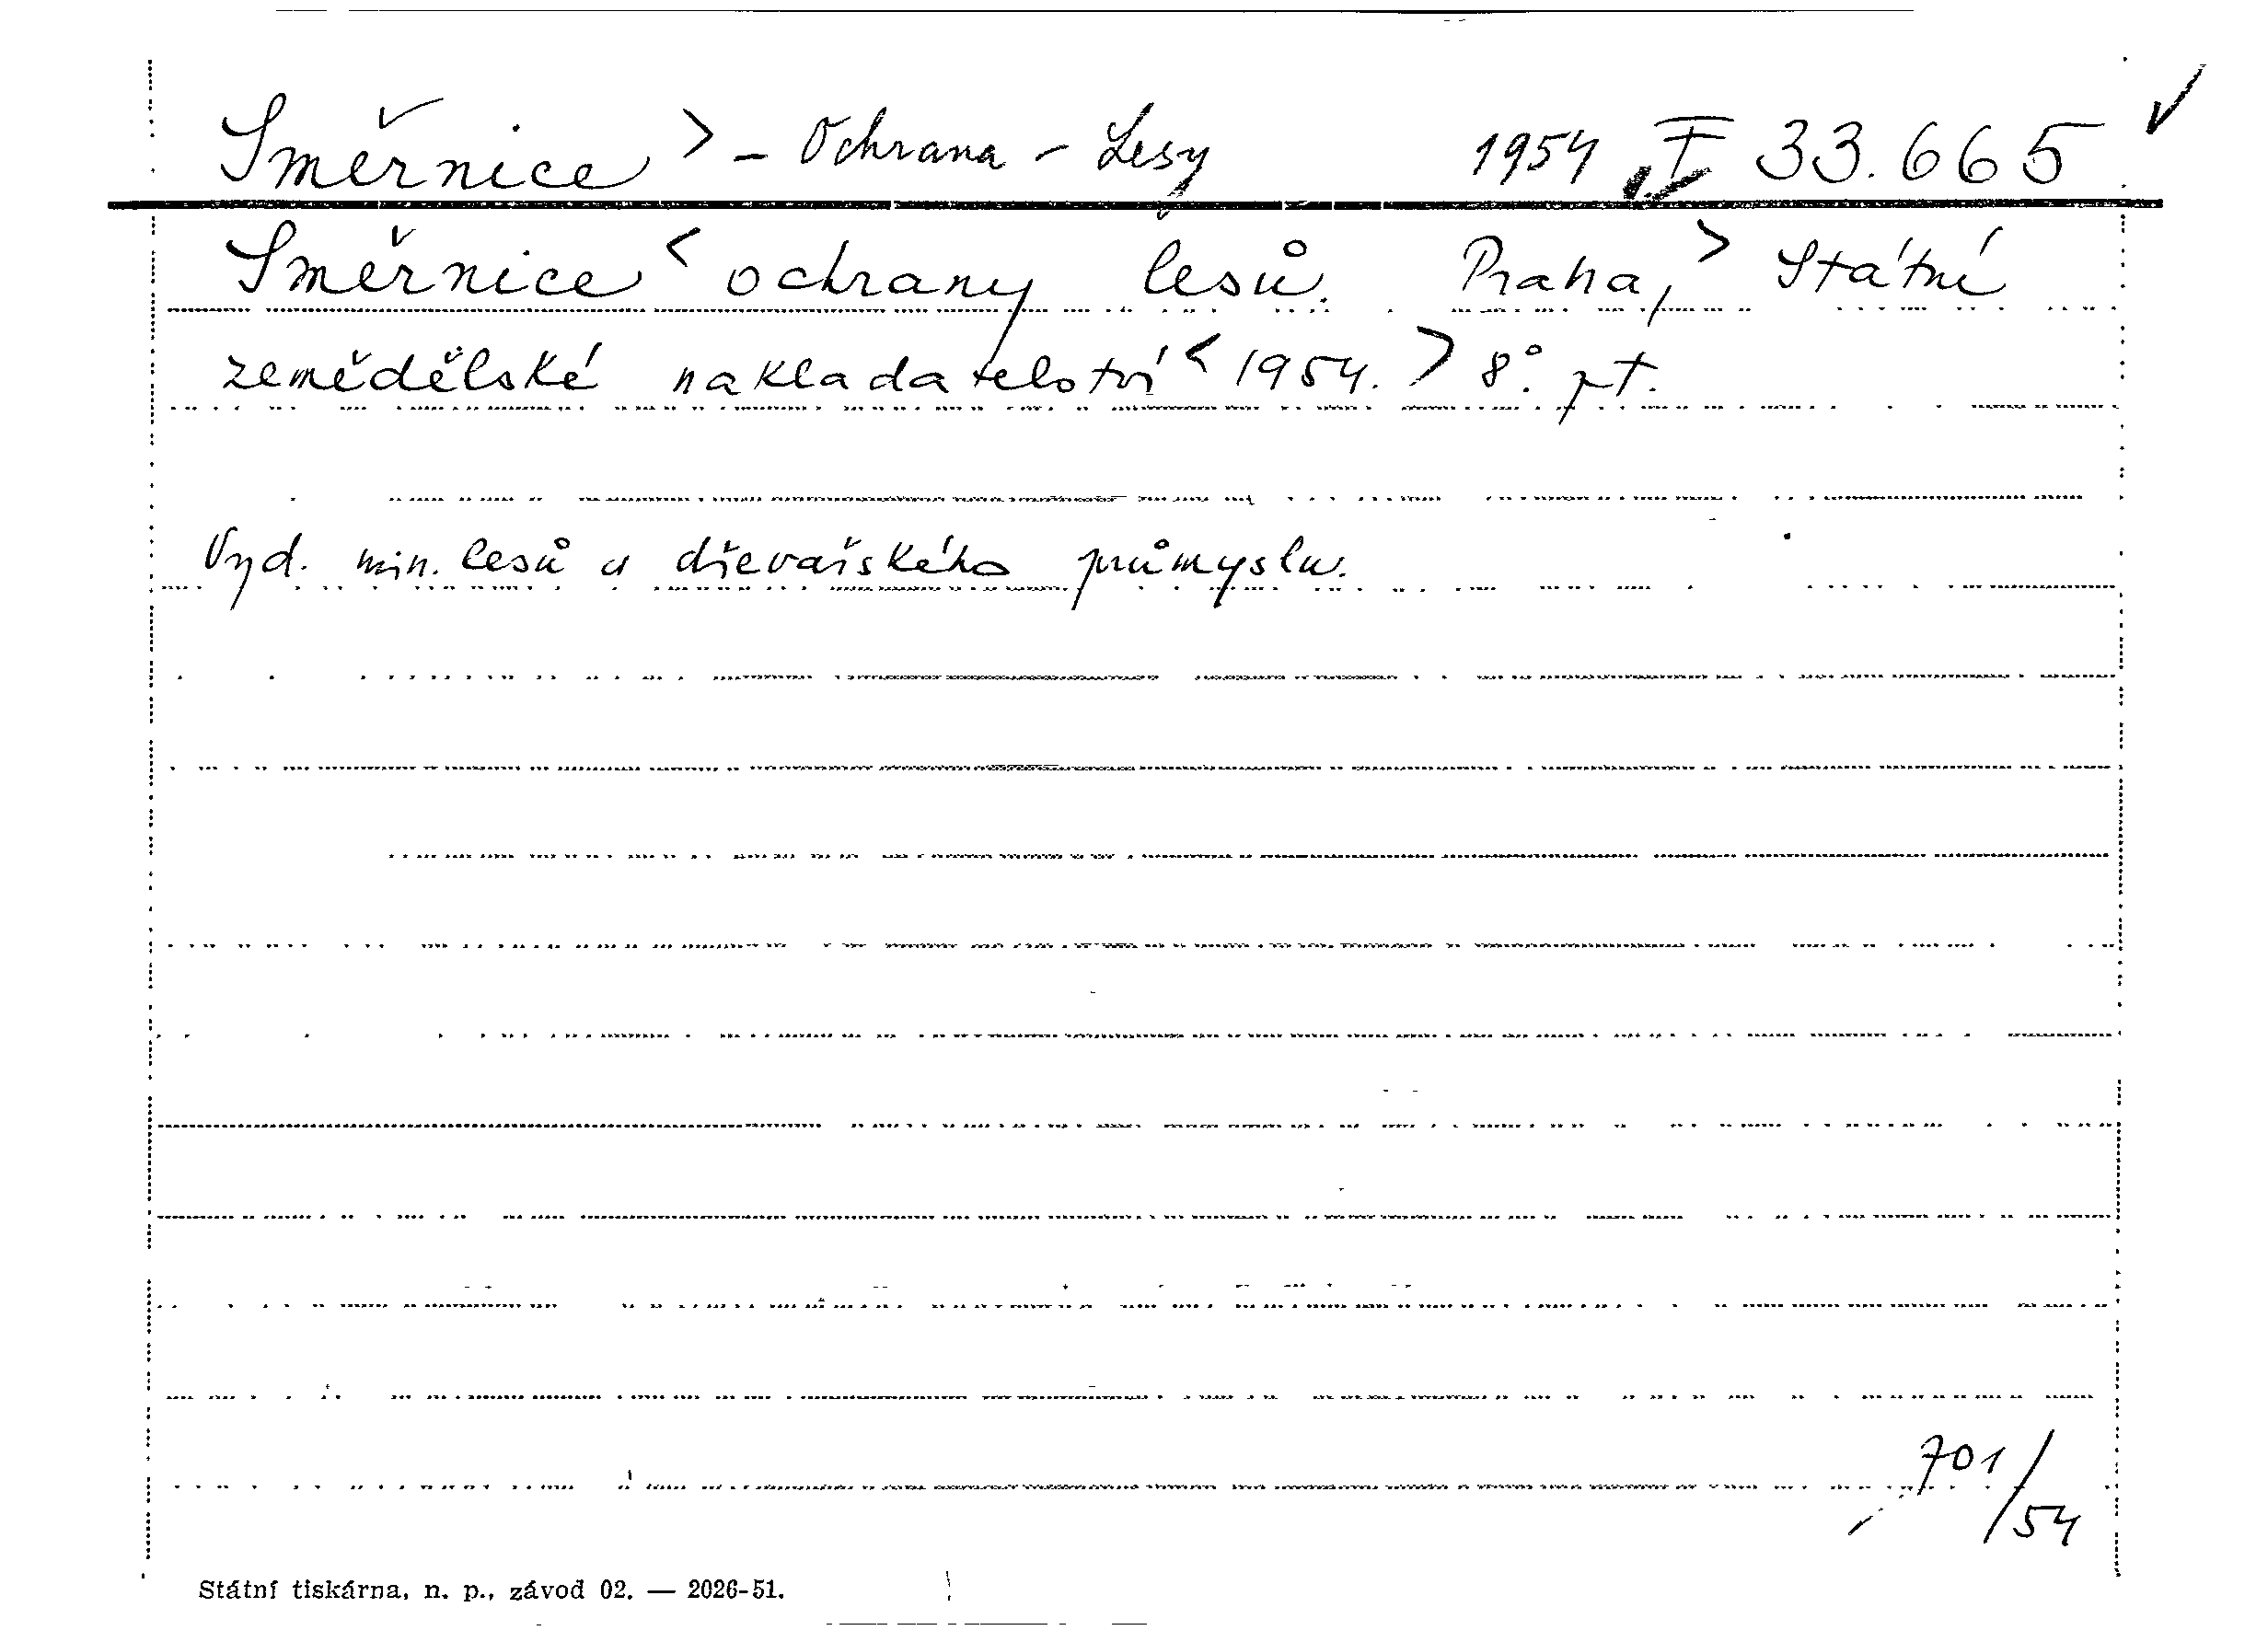 Směrnice > - Ochrana - Lesy 1954 I 33.665
Směrnice < ochrany lesů. Praha, > Státní
zemědělské nakladatelství < 1954. > 8°. pt.
Vyd. min. lesů a dřevařského průmyslu.
701/54
Státní tiskárna, n. p., závod 02. — 2026-51.